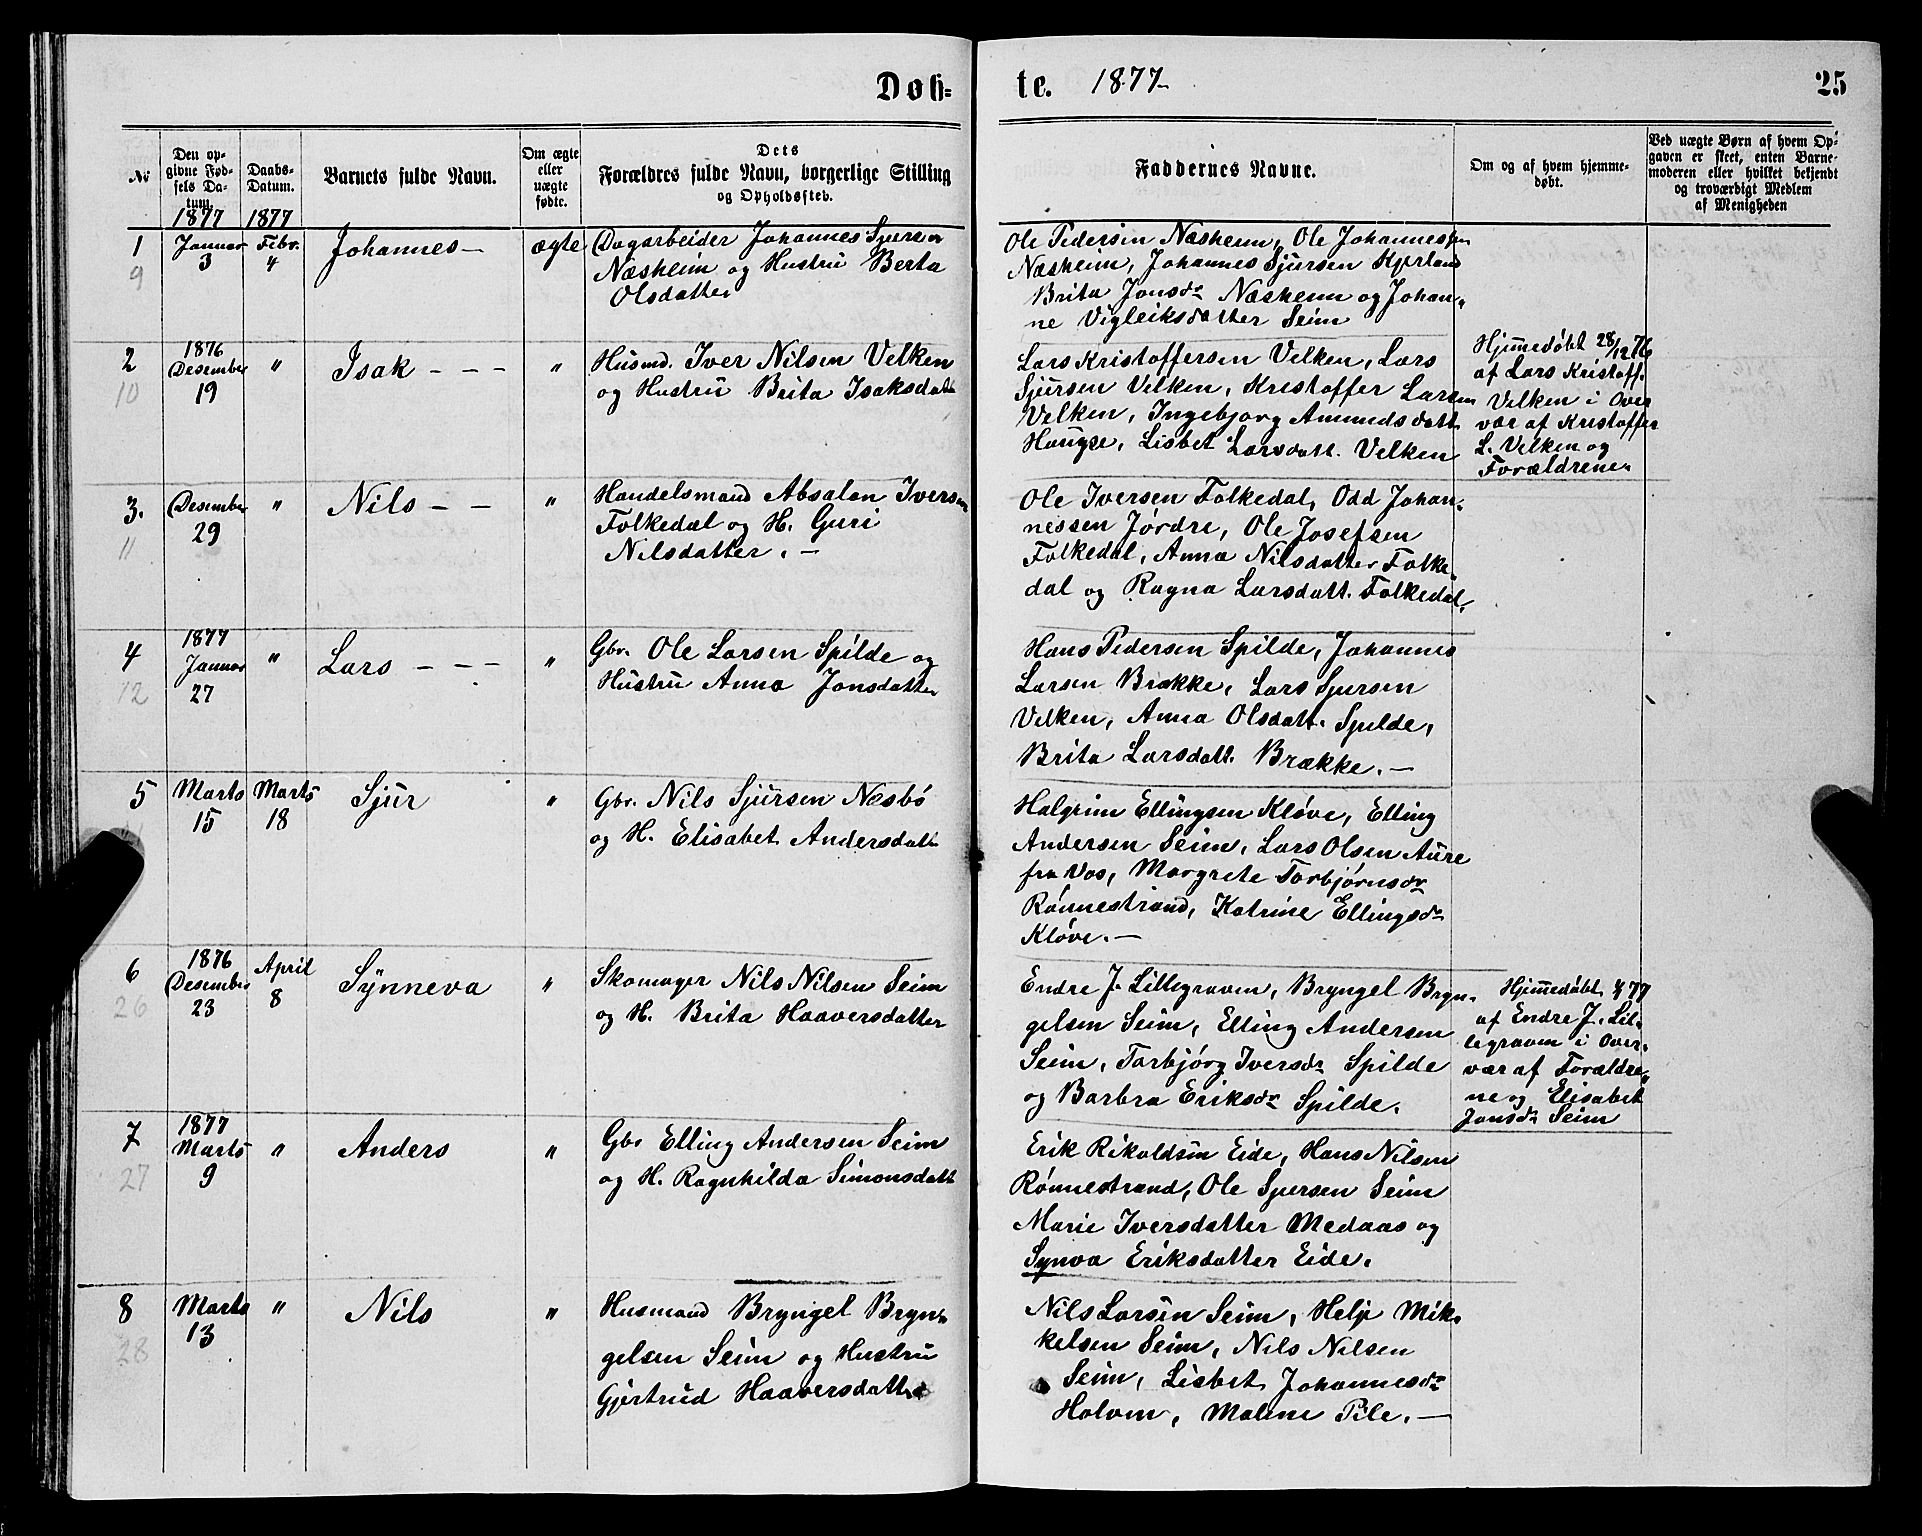 Døb=
te. 1877
25
No
Den op-
givne Fød-
sels Da-
tum.
1877
Daabs-
Datum.
1877
Barnets fulde Navn.
Om ægte
eller
uægte
fødte.
Dets
Forældres fulde Navn, borgerlige Stilling
og Opholdssted.
Faddernes Navne.
Om og af hvem hjemme-
døbt.
Ved uægte Børn af hvem Op-
gaven er skeet, enten Barne-
moderen eller hvilket bekjendt
og troværdigt Medlem
af Menigheden
1
9
Januar
3
Febr.
4
Johannes –
ægte
Dagarbeider Johannes Sjursen
Næsheim og Hustru Berta
Olsdatter
Ole Pedersen Næsheim, Ole Johannessen
Næsheim, Johannes Sjursen Kjerland
Brita Jonsdr Næsheim og Johan-
ne Vigleiksdatter Seim
2
10
1876
Desember
19
"
Isak – – –
"
Husmd. Iver Nilsen Velken
og Hustru Brita Isaksdatt
Lars Kristoffersen Velken, Lars
Sjursen Velken, Kristoffer Larsen
Velken, Ingebjorg Amundsdatt
Haugse, Lisbet Larsdatt. Velken
Hjemmedøbt 28/12 76
af Lars Kristoff.
Velken i Over
vær af Kristoffer
L. Velken og
Forældrene
3.
11
Desember
29
"
Nils – –
"
Handelsmand Absalon Iversen
Folkedal og H. Guri
Nilsdatter. –
Ole Iversen Folkedal, Odd Johan-
nessen Jørdre, Ole Josefsen
Folkedal, Anna Nilsdatter Folke-
dal og Ragna Larsdatt. Folkedal.
4
12
1877
Januar
27
"
Lars – – –
"
Gbr. Ole Larsen Spilde og
Hustru Anna Jonsdatter
Hans Pedersen Spilde, Johannes
Larsen Brække, Lars Sjursen
Velken, Anna Olsdatt. Spilde,
Brita Larsdatt. Brække. –
5
Marts
15
Marts
18
Sjur
"
Gbr. Nils Sjursen Næsbø
og H. Elisabet Andersdatt
Halgrim Ellingsen Kløve, Elling
Andersen Seim, Lars Olsen Aure
fra Vos, Margrete Torbjørnsdr
Rønnestrand, Katrine Ellingsdr
Kløve. –
6
26
1876
Desember
23
April
8
Synneva
"
Skomager Nils Nilsen Seim
og H. Brita Haaversdatter
Endre J. Lillegraven, Bryngel Bryn-
gelsen Seim, Elling Andersen
Seim, Torbjørg Iversdr Spilde
og Barbra Eriksdr Spilde.
Hjemmedøbt 77
af Endre J. Lil-
legraven i Over-
vær af Forældre-
ne og Elisabet
Jonsdr Seim
7
27
1877
Marts
9
"
Anders
"
Gbr Elling Andersen Seim
og H. Ragnhilda Simonsdatt
Erik Rikoldsen Eide, Hans Nilsen
Rønnestrand, Ole Sjursen Seim
Marie Iversdatter Medaas og
Synva Eriksdatter Eide.
8
28
Marts
13
"
Nils
"
Husmand Bryngel Bryn-
gelsen Seim og Hustru
Gjertrud Haaversdatter
Nils Larsen Seim, Helje Mik-
kelsen Seim, Nils Nilsen
Seim, Lisbet Johannesdr
Holven, Malene Pile. –